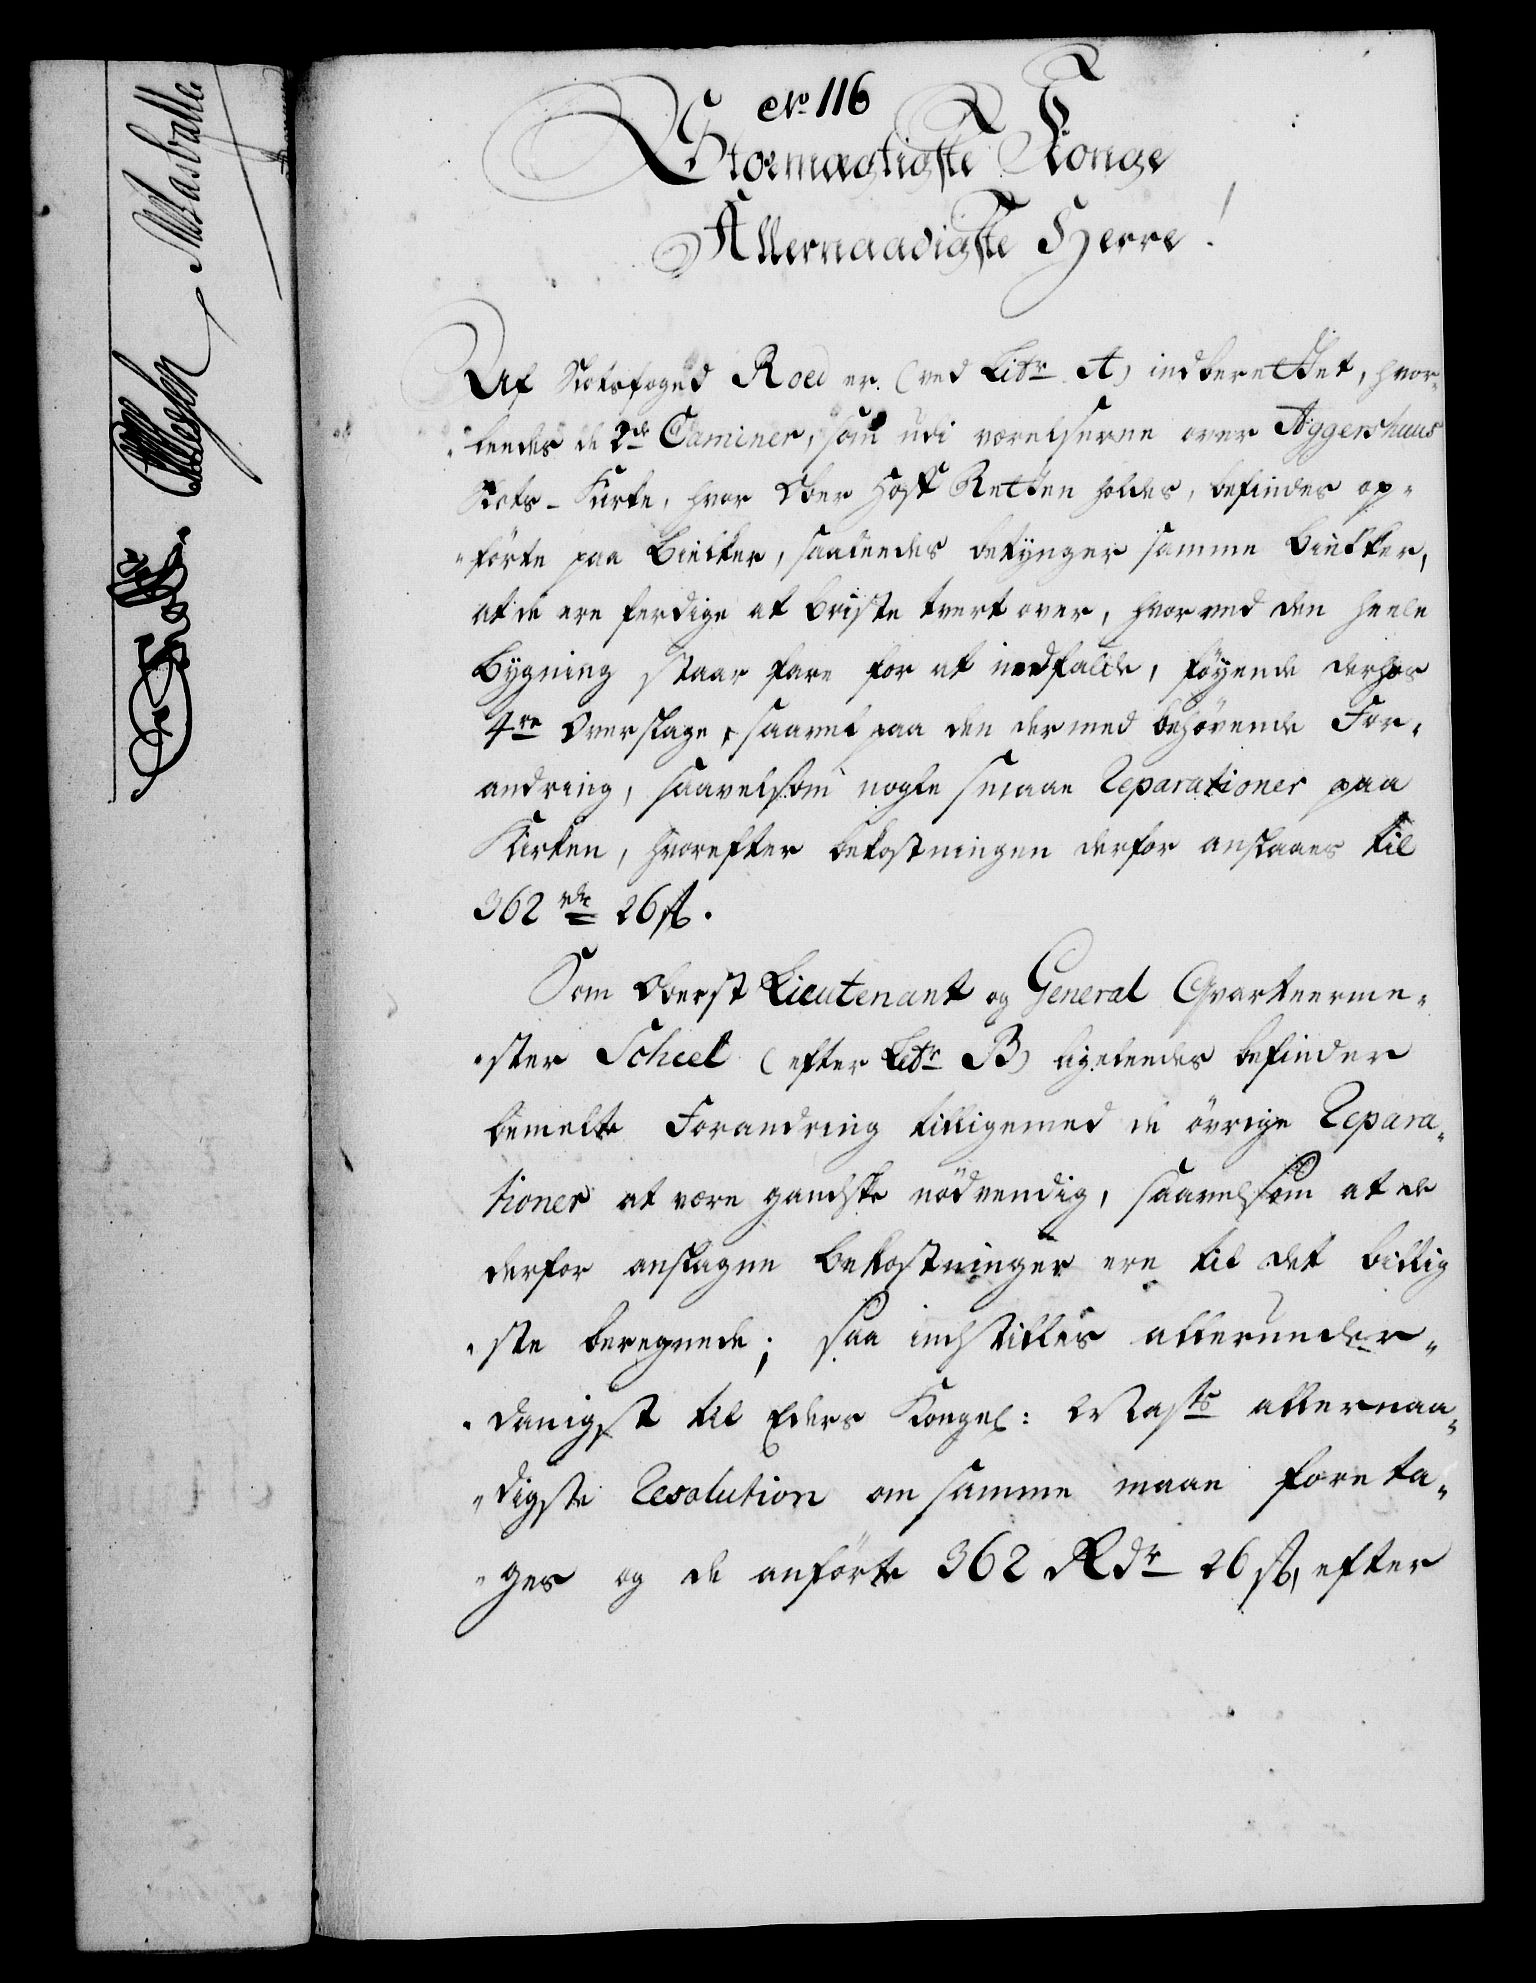 No 116
Stormægtigste Konge
Allernaadigste Herre!
Af Slotsfoged Roed er (ved Litr A) indberettet, hvor-
ledes de 2de Caminer, som udi værelserne over Aggershuus
Slots-Kirke, hvor Ober Hoff Retten holdes, befindes op-
förte paa Bielker, saaledes betynger samme Bielker,
at de ere ferdige at briste tvert over, hvorved den heele
Bygning staar fare for at nedfalde, föyende derhos
4re Overslage, saavel paa den dermed behövende For-
andring, saavelsom nogle smaae Reparationer paa
Kirken, hvorefter bekostningen derfor anslaaes til
362 rdr 26 ß.
Som Oberst Lieutenant og General Qvarteerme-
ster Scheel (efter Litr B) ligeledes befinder
bemelte Forandring tilligemed de övrige Repara-
tioner at være gandske nödvendig, saavelsom at de
derfor anslagne Bekostninger ere til det billig-
ste beregnede; saa indstilles allerunder-
danigst til Eders Kongel: Maysts allernaa-
digste Resolution om samme maae foreta-
ges og de anförte 362 Rdr 26 ß, efter